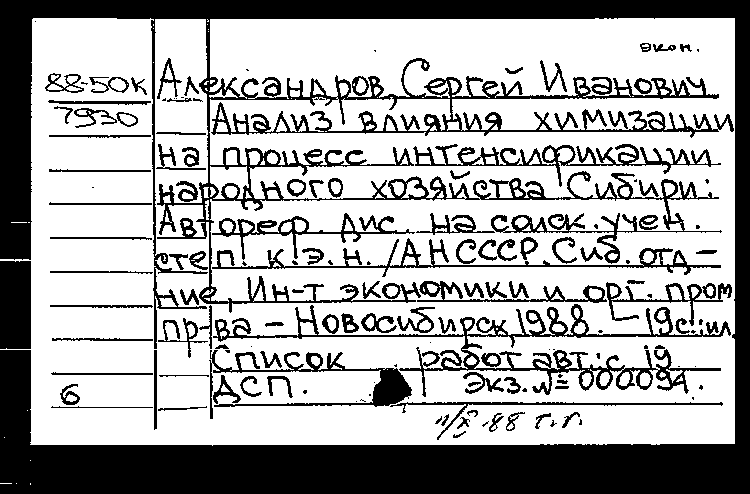 экон.
88-50к Александров, Сергей Иванович
7930 Анализ влияния химизации
на процесс интенсификации
народного хозяйства Сибири:
Автореф. дис. на соиск. учен.
степ. к.э.н. / АН СССР. Сиб. отд-
ние, Ин-т экономики и орг. пром.
пр-ва. - Новосибирск, 1988. - 19 с.: ил.
Список работ авт.: с. 19
6 ДСП. Экз. № 000094.
88 г.